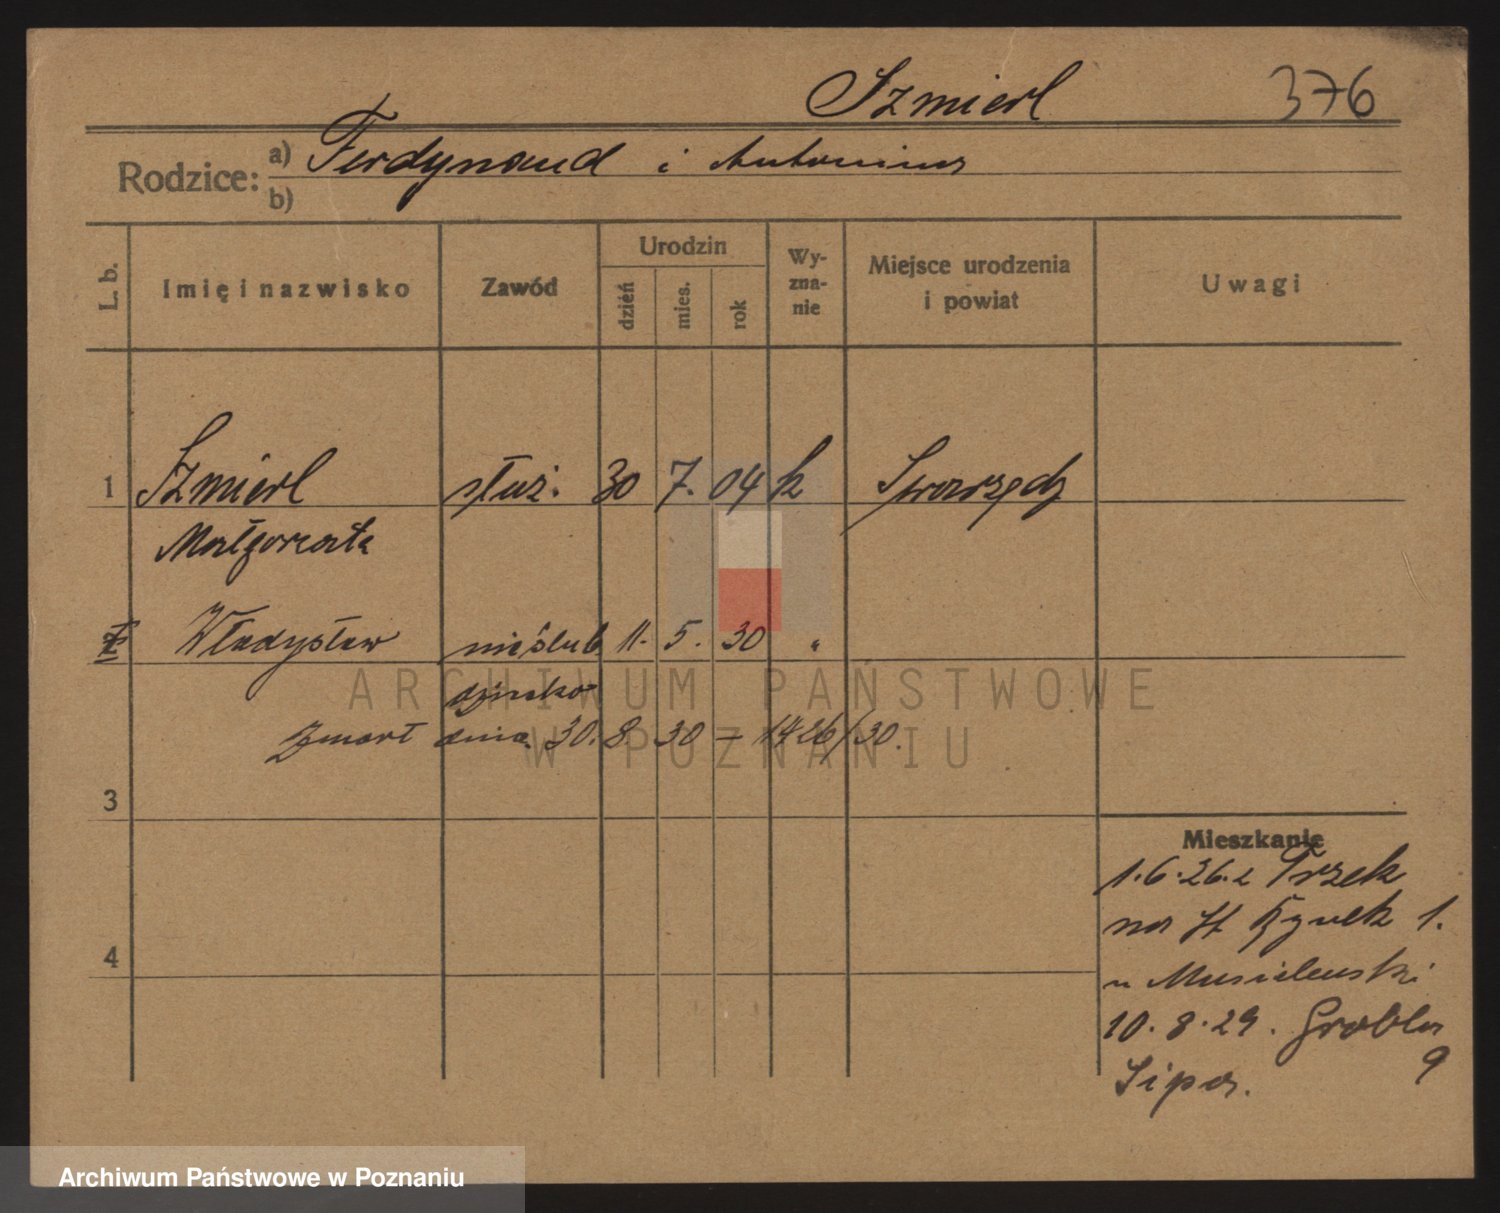 Szmierl 376
Rodzice: a) Ferdynand i Antonina
b)
L. b. Imię i nazwisko Zawód Urodzin dzień mies. rok Wy-zna-nie Miejsce urodzenia i powiat Uwagi
1 Szmierl służ. 30 7. 04 k Swarzędz
Małgorzata
2 Władysław nieślub 11. 5. 30 "
dziecko
zmarł dnia 30. 8. 30 – 1426/30.
3
Mieszkanie
1.6.26. z Trzek
na St Rynek 1.
4
u Musielewski
10.8.29. Grobla 9
Lipa.
ARCHIWUM PAŃSTWOWE
W POZNANIU
Archiwum Państwowe w Poznaniu